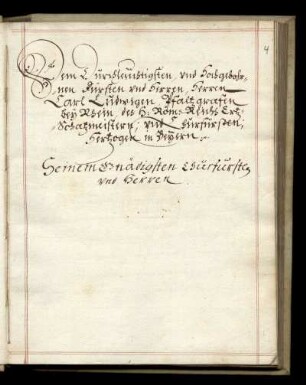 4
Dem Churfürstleüchtigsten, und Hochgebohr-
nen Fürsten und Herren, Herren
Carl Ludwigen Pfaltzgrafen
bey Rhein, des H. Röm. Reichs Ertz-
Schatzmeistern, und Churfürsten,
Hertzogen in Beÿern.
Seinem Gnädigsten Churfürsten
und Herren.